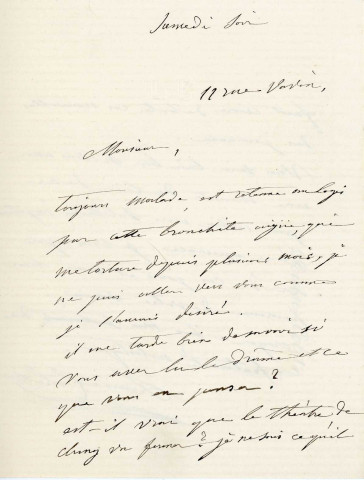 Samedi Soir
12 rue Vavin,
Monsieur,
toujours malade, est retenue au logis
par cette bronchite aigüe, qui
me torture depuis plusieurs mois, je
ne puis aller vers vous comme
je l'aurais désiré.
il me tarde bien de savoir si
vous avez lu le drame et ce
que vous en pensez?
est-il vrai que le théâtre de
cluny va fermer? je ne sais ce qu'il